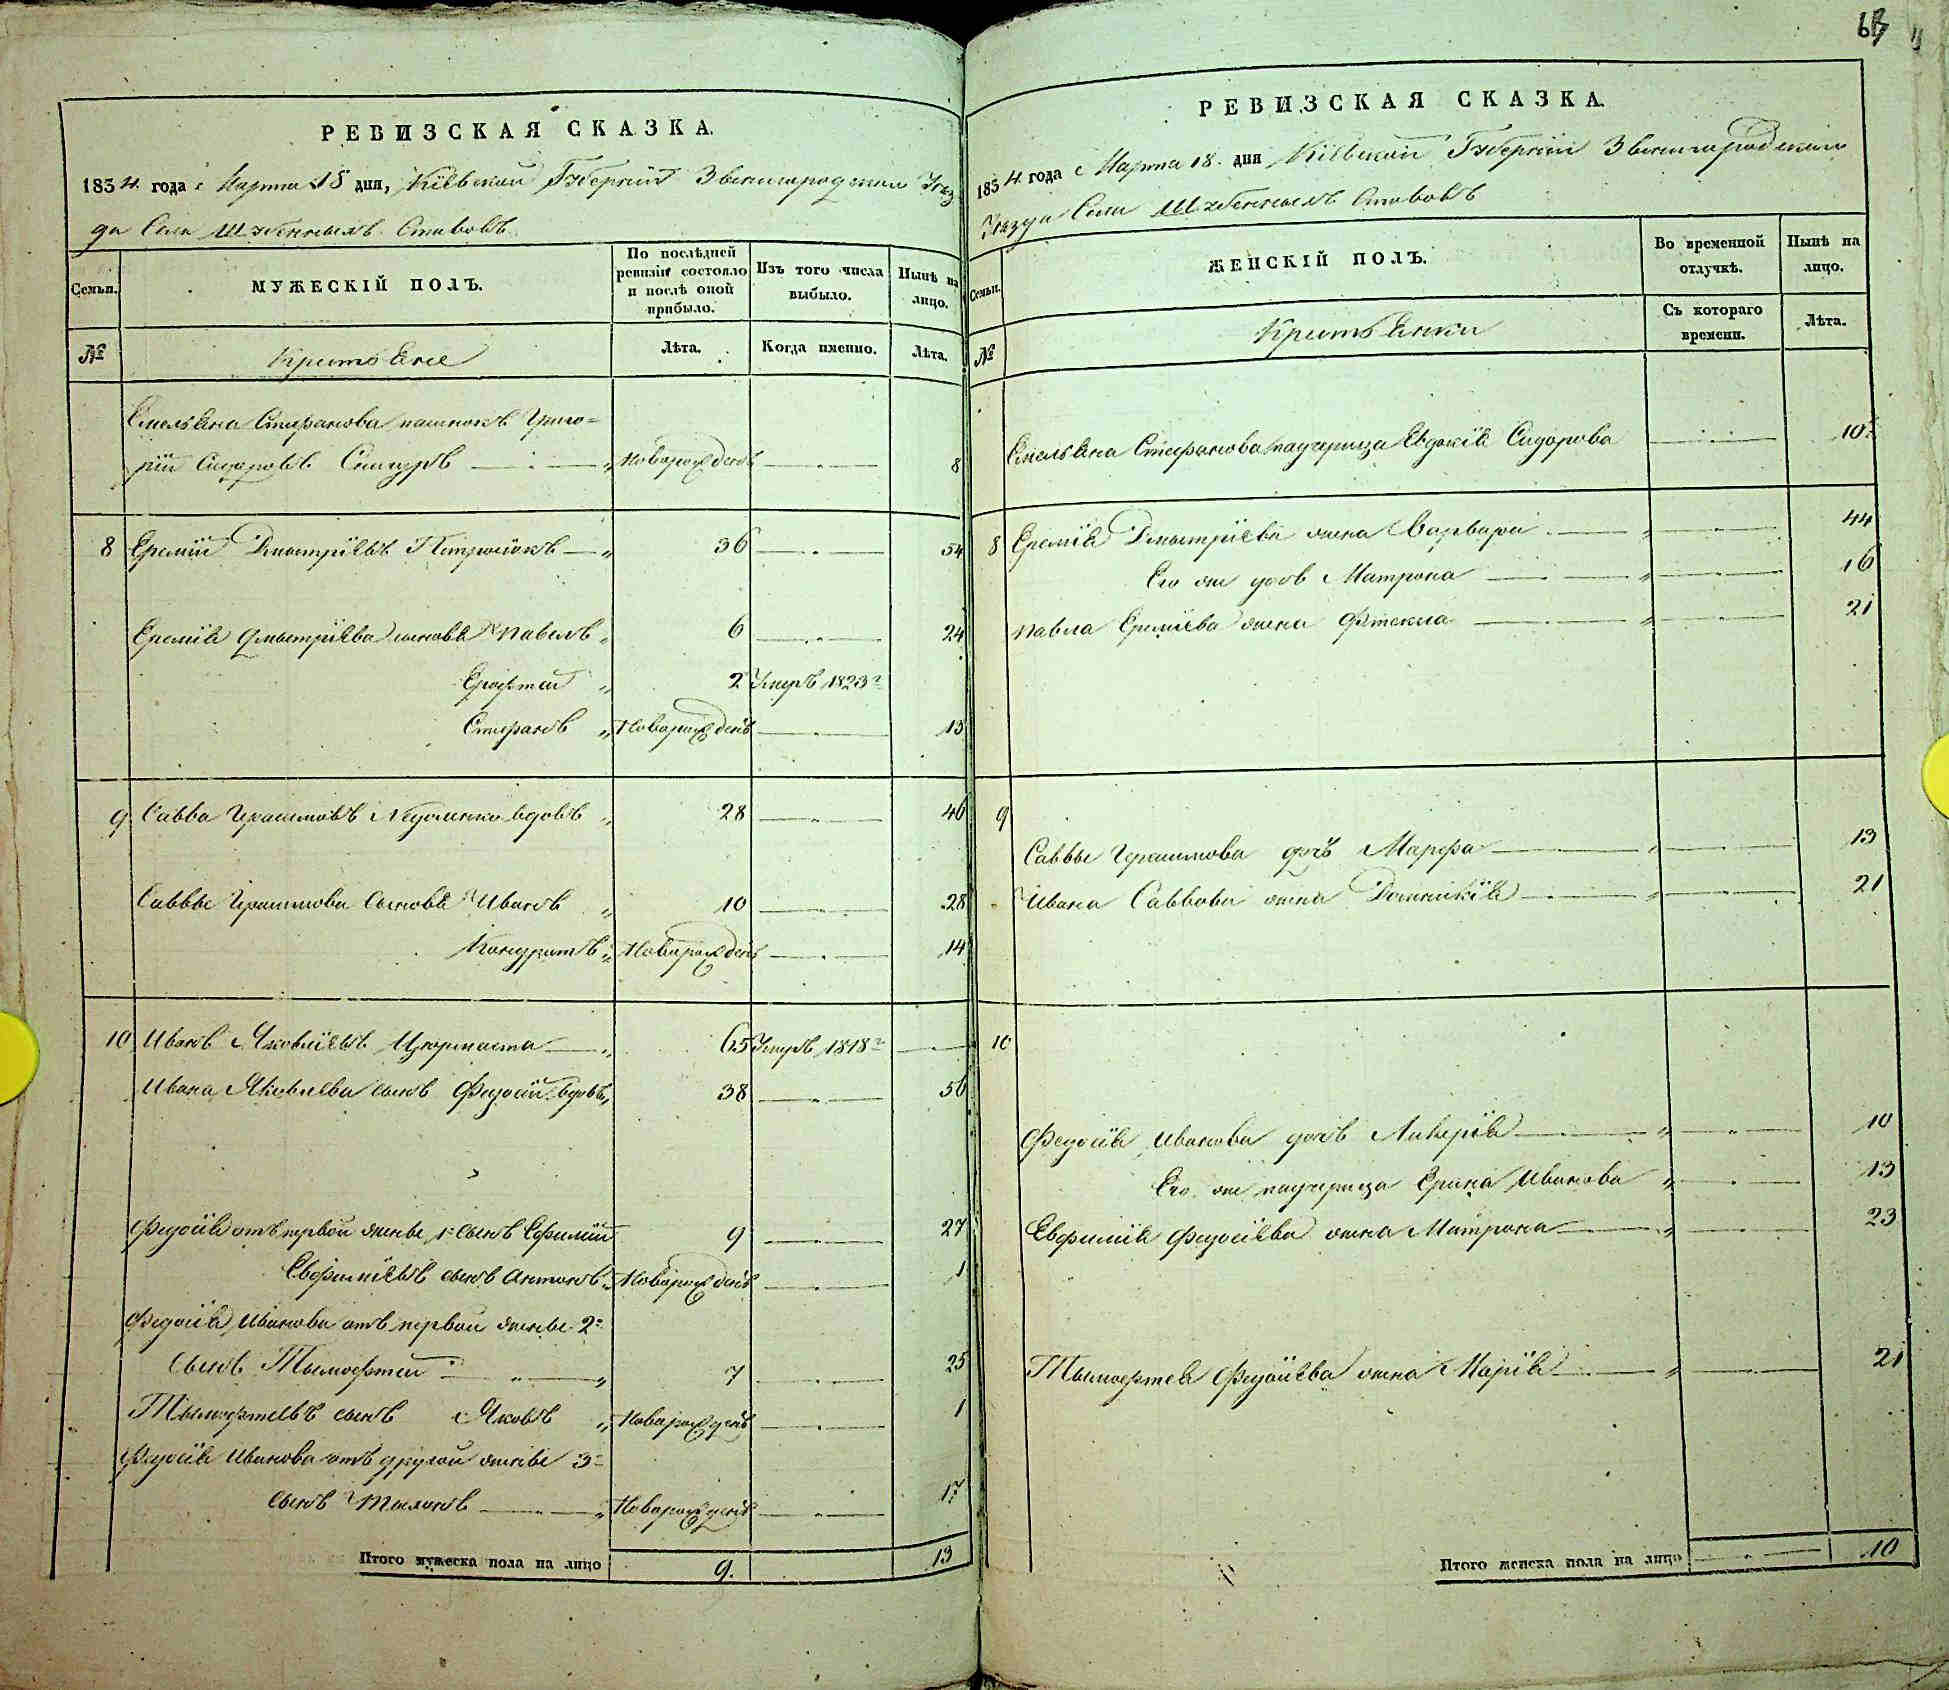 67
РЕВИЗСКАЯ СКАЗКА.
1834 года Марта 18 дня, Кіевской Губерніи Звенигородскаго Уез
да Села Шубенныхъ Ставовъ
Семьи.
МУЖЕСКІЙ ПОЛЪ.
По послѣдней ревизіи состояло и послѣ оной прибыло.
Изъ того числа выбыло.
Нынѣ на лицо.
№
Крестьяне
Лѣта.
Когда именно.
Лѣта.
Емельяна Стефанова пасинокъ Григо=
рій Сидоровъ новорожденъ 8
8 Еремій Дмытріевъ 36 54
Еремія Дмытріева сыновья Павелъ 6 24
Ерофтей 2 Умеръ 1823г
Стефанъ Новорожденъ 15
9 Савва Герасимовъ вдовъ 28 46
Саввы Герасимова Сыновья Иванъ 10 28
Кондратъ Новорожденъ 14
10 Иванъ Яковлевъ 65 Умеръ 1818г
Ивана Яковлева сынъ Федосій вдовъ 38 56
Федосія отъ первой жены 1й сынъ Ефимій 9 27
Евфиміевъ сынъ Антонъ Новорожденъ 1
Федосія Иванова отъ первой жены 2й
сынъ Тымофтей 7 25
Тымофтевъ сынъ Яковъ Новорожденъ 1
Федосія Иванова отъ другой жены 3й
сынъ Новорожденъ 17
Итого мужеска пола на лицо 9. 13
РЕВИЗСКАЯ СКАЗКА.
1834 года Марта 18 дня Кіевской Губерніи Звенигородскаго
Уезда Села Шубенныхъ Ставовъ
Семьи.
ЖЕНСКІЙ ПОЛЪ.
Во временной отлучкѣ.
Нынѣ на лицо.
Съ котораго времени.
Лѣта.
№
Крестьянки
Емельяна Стефанова падчерица Евдокія Сидорова 10
8 Еремія Дмытріева жена Варвара 44
Его же дочь Матрона 16
Павла Ереміева жена Фтекла 21
9
Саввы Герасимова дочь Марфа 13
Ивана Саввова жена Домникія 21
10
Федосія Иванова дочь Ликерія 10
Его же падчерица Ерина Иванова 13
Евфимія Федосіева жена Матрона 23
Тымофтея Федосіева жена Марія 21
Итого женска пола на лицо 10